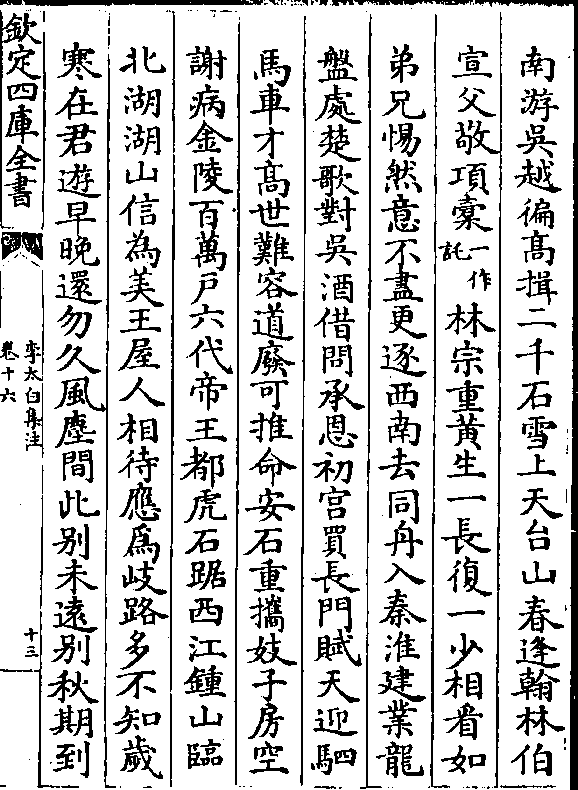 南游吳越徧髙揖二千石雪上天台山春逢翰林伯
宣父敬項橐一作託林宗重黄生一長復一少相看如
弟兄惕然意不盡更逐西南去同舟入秦淮建業龍
盤處楚歌對吳酒借問承恩初宫買長門賦天迎駟
馬車才髙世難容道廢可推命安石重攜妓子房空
謝病金陵百萬戸六代帝王都虎石踞西江鍾山臨
北湖湖山信為美王屋人相待應爲岐路多不知歲
寒在君遊早晚還勿久風塵間此别未遠别秋期到
欽定四庫全書
李太白集注
卷十六
十三